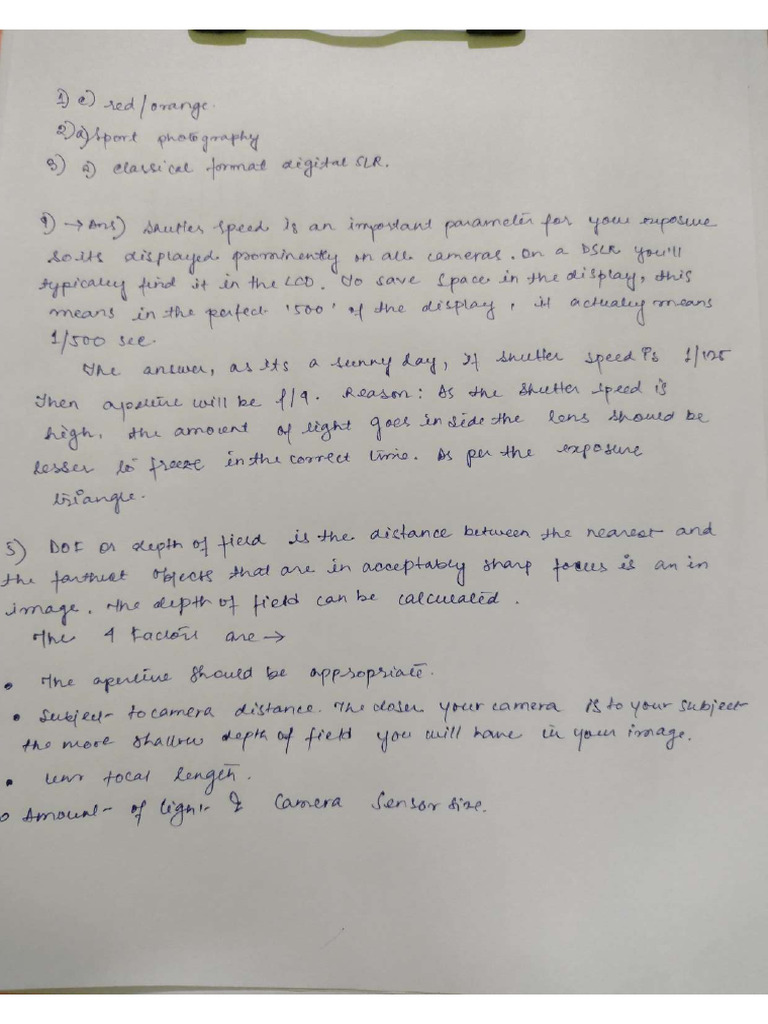 1) c) red/orange.
2) a) Sport photography
3) a) classical format digital SLR.
4) → Ans) Shutter speed is an important parameter for your exposure
so its displayed prominently on all cameras. On a DSLR you'll
typically find it in the LCD. To save space in the display, this
means in the perfect '500' of the display, it actually means
1/500 sec.
The answer, as its a sunny day, if shutter speed is 1/125
Then aperture will be f/9. Reason: As the shutter speed is
high, the amount of light goes inside the lens should be
lesser to freeze in the correct time. As per the exposure
triangle.
5) DOF or depth of field is the distance between the nearest and
the farthest objects that are in acceptably sharp focus is an in
image. The depth of field can be calculated.
The 4 factors are →
• The aperture should be appropriate.
• Subject to camera distance. The closer your camera is to your subject
the more shallow depth of field you will have in your image.
• Lens focal length.
• Amount of light & camera sensor size.